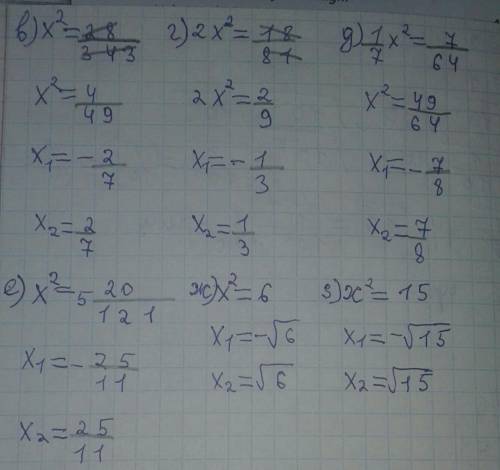 в) x² = 28/343
x² = 4/49
x₁ = -2/7
x₂ = 2/7
г) 2x² = 18/81
2x² = 2/9
x₁ = -1/3
x₂ = 1/3
д) 1/7 x² = 7/64
x² = 49/64
x₁ = -7/8
x₂ = 7/8
е) x² = 5 20/121
x₁ = -25/11
x₂ = 25/11
ж) x² = 6
x₁ = -√6
x₂ = √6
з) x² = 15
x₁ = -√15
x₂ = √15